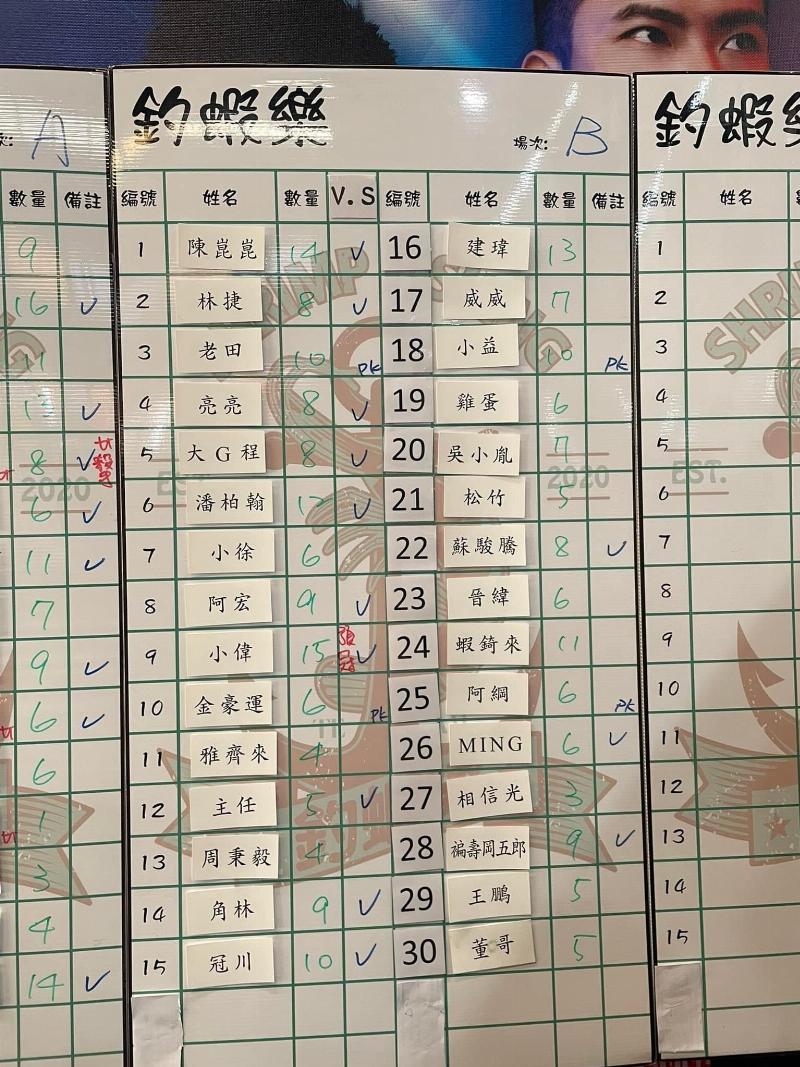 釣蝦樂
場次: B
編號 姓名 數量 V.S 編號 姓名 數量 備註
1 陳崑崑 14 ✓ 16 建瑋 13
2 林捷 8 ✓ 17 威威 7
3 老田 10 PK 18 小益 10 PK
4 亮亮 8 ✓ 19 雞蛋 6
5 大G程 8 ✓ 20 吳小胤 7
6 潘柏翰 12 ✓ 21 松竹 5
7 小徐 6 22 蘇駿騰 8 ✓
8 阿宏 9 ✓ 23 晉緯 6
9 小偉 15 ✓ 24 蝦錡來 11
10 金豪運 6 PK 25 阿綱 6 PK
11 雅齊來 4 26 MING 6 ✓
12 主任 5 ✓ 27 相信光 3
13 周秉毅 4 28 褔壽岡五郎 9 ✓
14 角林 9 ✓ 29 王鵬 5
15 冠川 10 ✓ 30 董哥 5
A
數量 備註
9
16 ✓
11
13 ✓
8 ✓
6 ✓
11 ✓
7
9 ✓
6 ✓
6
1
3
4
14 ✓
釣蝦
編號 姓名
1
2
3
4
5
6
7
8
9
10
11
12
13
14
15
SHRIMP
2020
EST.
2020
EST.